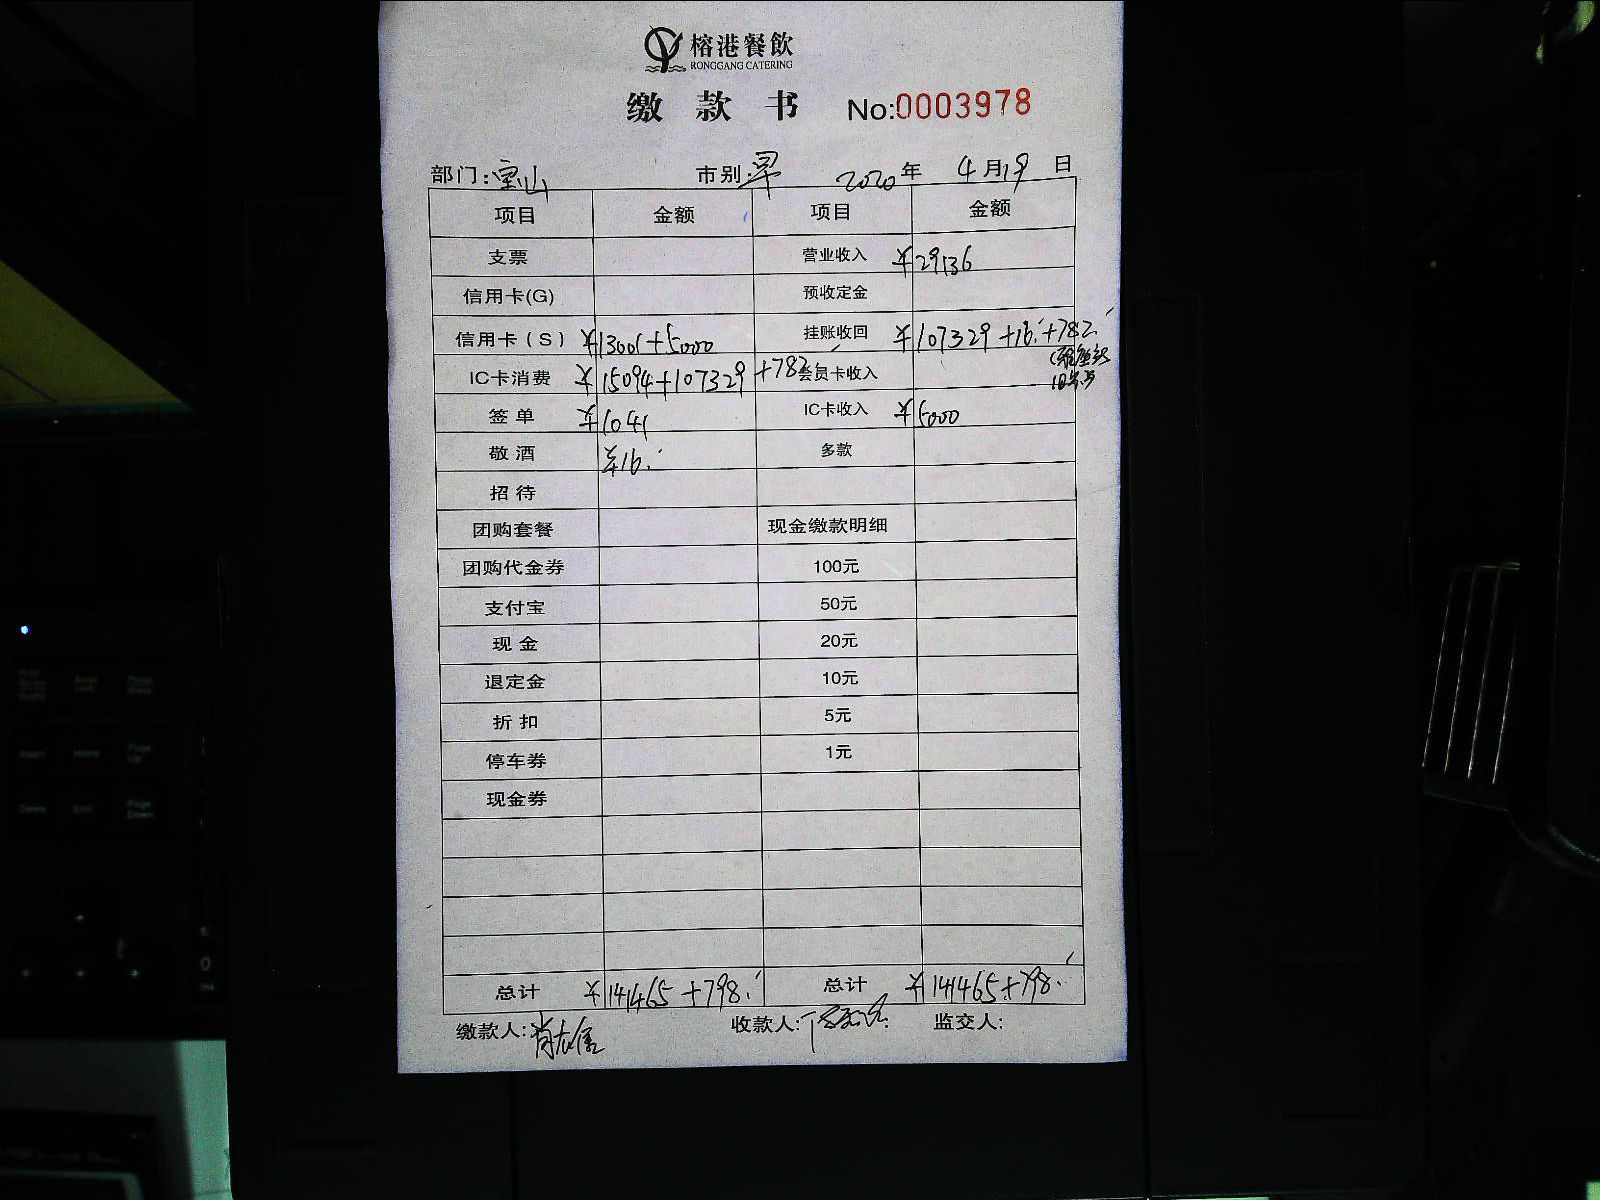 榕港餐飲
RONGGANG CATERING
缴 款 书 No:0003978
部门:宝山 市别:早 2020年 4月19日
项目 金额 项目 金额
支票 营业收入 ¥29136
信用卡(G) 预收定金
信用卡(S) ¥13001+5000 挂账收回 ¥107329+16.+782.
IC卡消费 ¥15094+107329+782 会员卡收入
签单 ¥1041 IC卡收入 ¥5000
敬酒 ¥16. 多款
招待
团购套餐 现金缴款明细
团购代金券 100元
支付宝 50元
现金 20元
退定金 10元
折扣 5元
停车券 1元
现金券
总计 ¥141465+798. 总计 ¥141465+798.
缴款人: 收款人: 监交人: